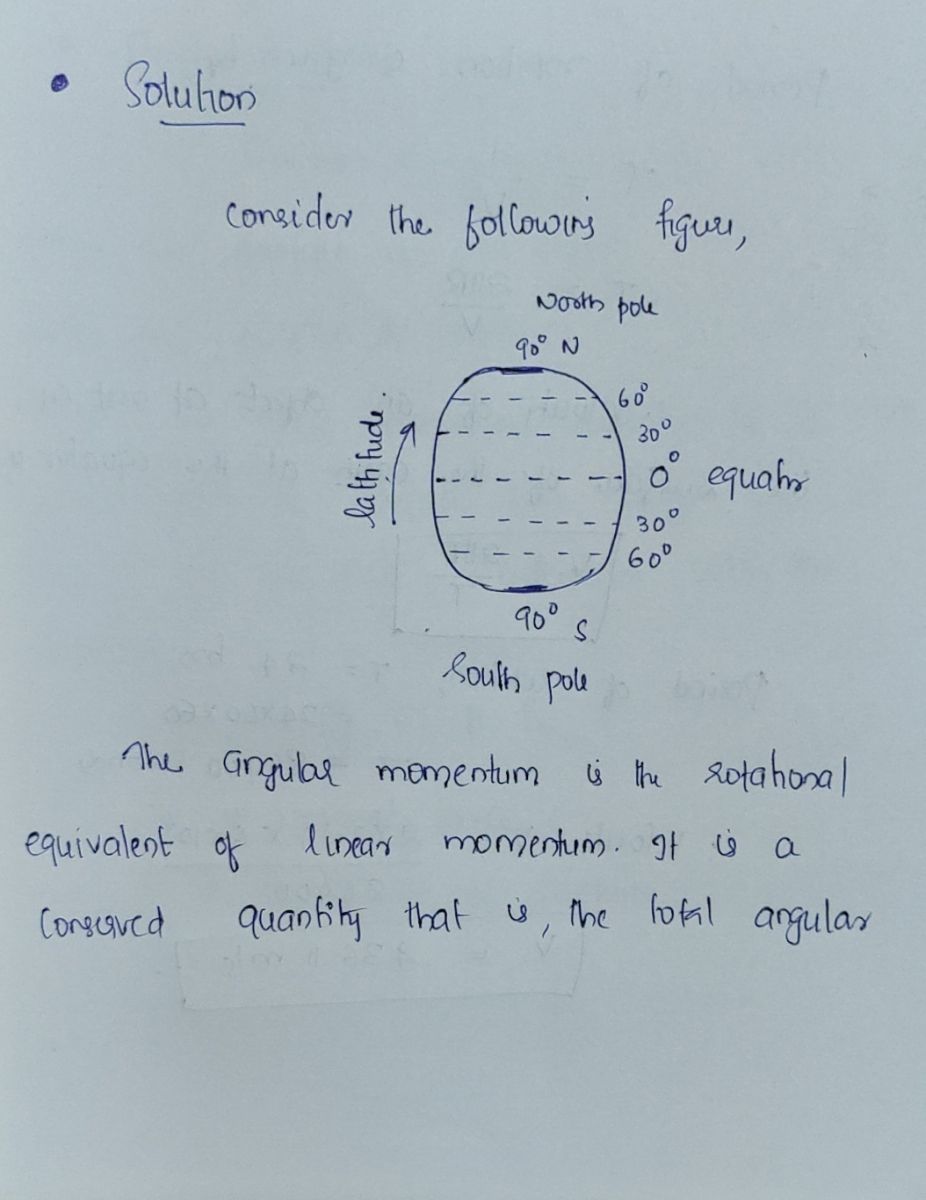 • Solution
Consider the following figure,
North pole
90° N
60°
30°
0° equator
30°
60°
latitude.
90° S
South pole
The angular momentum is the rotational
equivalent of linear momentum. It is a
Conserved quantity that is, the total angular